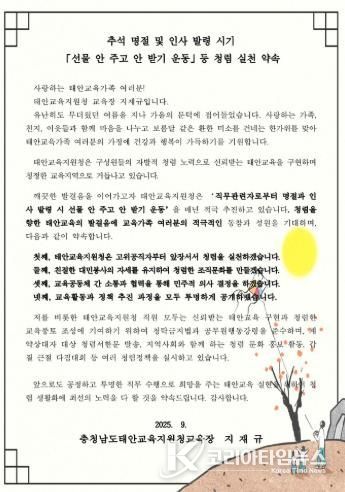 추석 명절 및 인사 발령 시기
「선물 안 주고 안 받기 운동」 등 청렴 실천 약속
사랑하는 태안교육가족 여러분!
태안교육지원청 교육장 지재규입니다.
유난히도 무더웠던 여름을 지나 가을의 문턱에 접어들었습니다. 사랑하는 가족,
친지, 이웃들과 함께 마음을 나누고 보름달 같은 환한 미소를 건네는 한가위를 맞아
태안교육가족 여러분의 가정에 건강과 행복이 가득하기를 기원합니다.
태안교육지원청은 구성원들의 자발적 청렴 노력으로 신뢰받는 태안교육을 구현하며
청정한 교육지역으로 거듭나고 있습니다.
깨끗한 발걸음을 이어가고자 태안교육지원청은 '직무관련자로부터 명절과 인
사 발령 시 선물 안 주고 안 받기 운동'을 매년 적극 추진하고 있습니다. 청렴을
향한 태안교육의 발걸음에 교육가족 여러분의 적극적인 동참과 성원을 기대하며,
다음과 같이 약속합니다.
첫째, 태안교육지원청은 고위공직자부터 앞장서서 청렴을 실천하겠습니다.
둘째, 친절한 대민봉사의 자세를 유지하여 청렴한 조직문화를 만들겠습니다.
셋째, 교육공동체 간 소통과 협력을 통해 민주적 의사 결정을 하겠습니다.
넷째, 교육활동과 정책 추진 과정을 모두 투명하게 공개하겠습니다.
저를 비롯한 태안교육지원청 직원 모두는 신뢰받는 태안교육 구현과 청렴한
교육풍토 조성에 기여하기 위하여 청탁금지법과 공무원행동강령을 준수하며, 계
약상대자 대상 청렴서한문 발송, 지역사회와 함께 하는 청렴 문화 홍보 활동, 갑
질 근절 다짐대회 등 여러 청렴정책을 실시하고 있습니다.
앞으로도 공정하고 투명한 직무 수행으로 희망을 주는 태안교육 실현을 위하여 청
렴 생활화에 최선의 노력을 다 할 것을 약속드립니다. 감사합니다.
2025. 9.
충청남도태안교육지원청교육장 지 재 규
코리아타임뉴스
Korea Time News